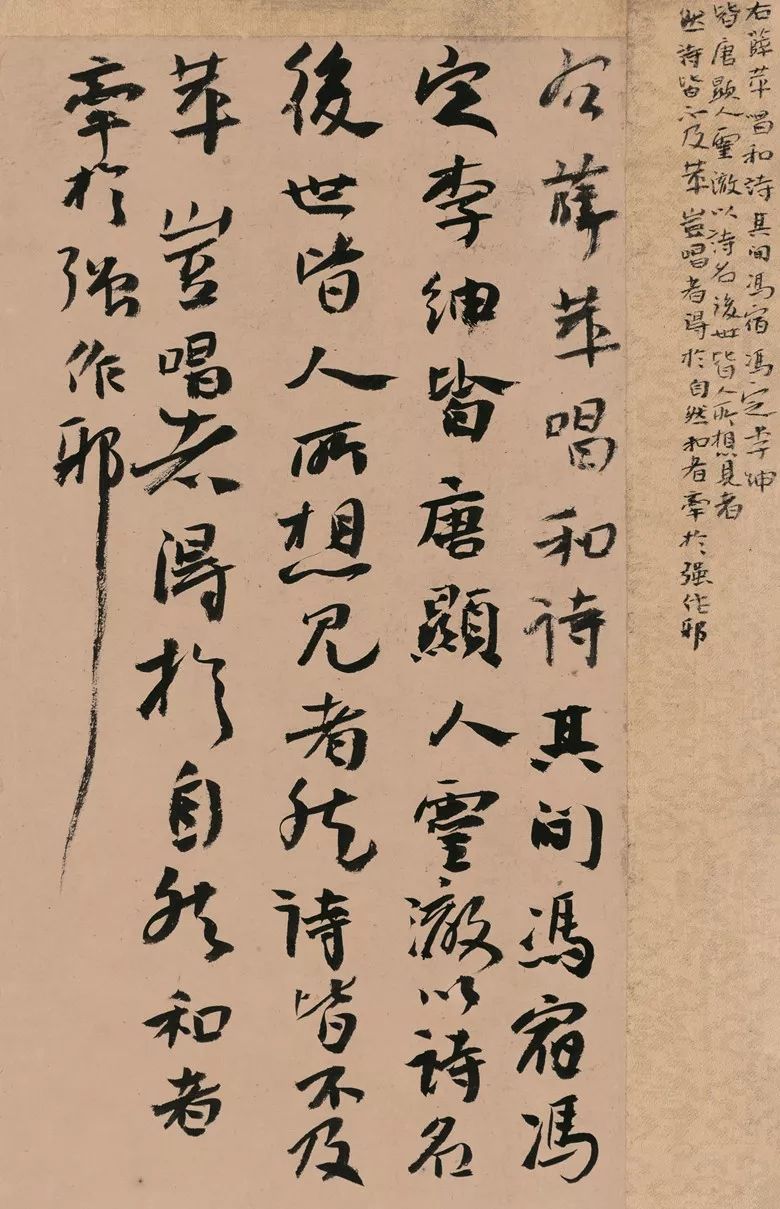 右薛苹唱和詩其间馮宿馮定李紳
皆唐顯人靈澈以詩名後世皆人所想見者
然詩皆不及苹豈唱者得於自然和者牽於强作邪
右薛苹唱和詩其间馮宿馮
定李紳皆唐顯人靈澈以詩名
後世皆人所想見者然詩皆不及
苹豈唱者得於自然和者
牽於强作邪